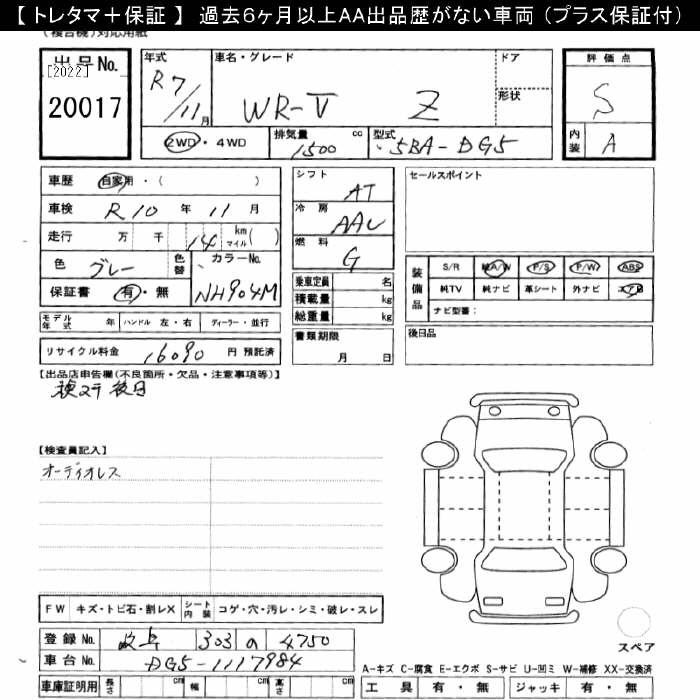 【 トレタマ＋保証 】 過去６ヶ月以上ＡＡ出品歴がない車両（プラス保証付）
(複合機)対応用紙
出品No. [2022] 20017
年式 R7/11月
車名・グレード WR-V Z
ドア
形状
評価点 S
内装 A
2WD・4WD
排気量 1500 cc
型式 5BA-DG5
車歴 自家用・( )
車検 R10 年 11 月
走行 万 千 14 km マイル( )
色 グレー 色替 カラーNo. NH904M
保証書 有・無
シフト AT
冷房 AAC
燃料 G
乗車定員 名
積載量 kg
総重量 kg
セールスポイント
装備品 S/R 純A/W P/S P/W ABS
純TV 純ナビ 革シート 外ナビ エアB
ナビ型番：
モデル年式 年 ハンドル 左・右 ディーラー・並行
リサイクル料金 16090 円 預託済
書類期限 月 日
後日品
【出品店申告欄(不良箇所・欠品・注意事項等)】
検ステ後日
【検査員記入】
オーディオレス
FW キズ・トビ石・割レX シート内装 コゲ・穴・汚レ・シミ・破レ・スレ
登録No. 岐阜 303 の 4750
車台No. DG5-1117984
車庫証明用 長さ cm 幅 cm 高さ cm
スペア
A-キズ C-腐食 E-エクボ S-サビ U-凹ミ W-補修 XX-交換済
工具 有・無 ジャッキ 有・無